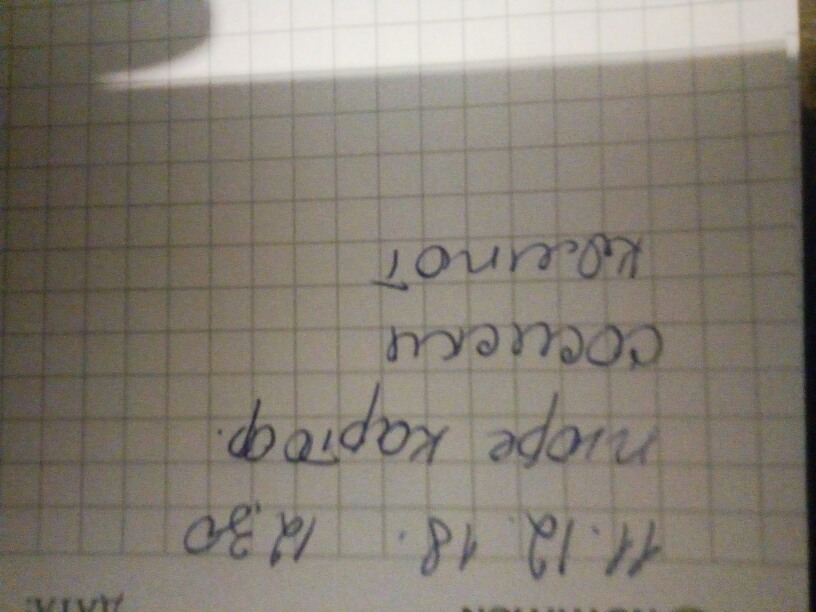 ДАТА:
11.12.18. 12.30
пюре картоф.
сосиски
компот